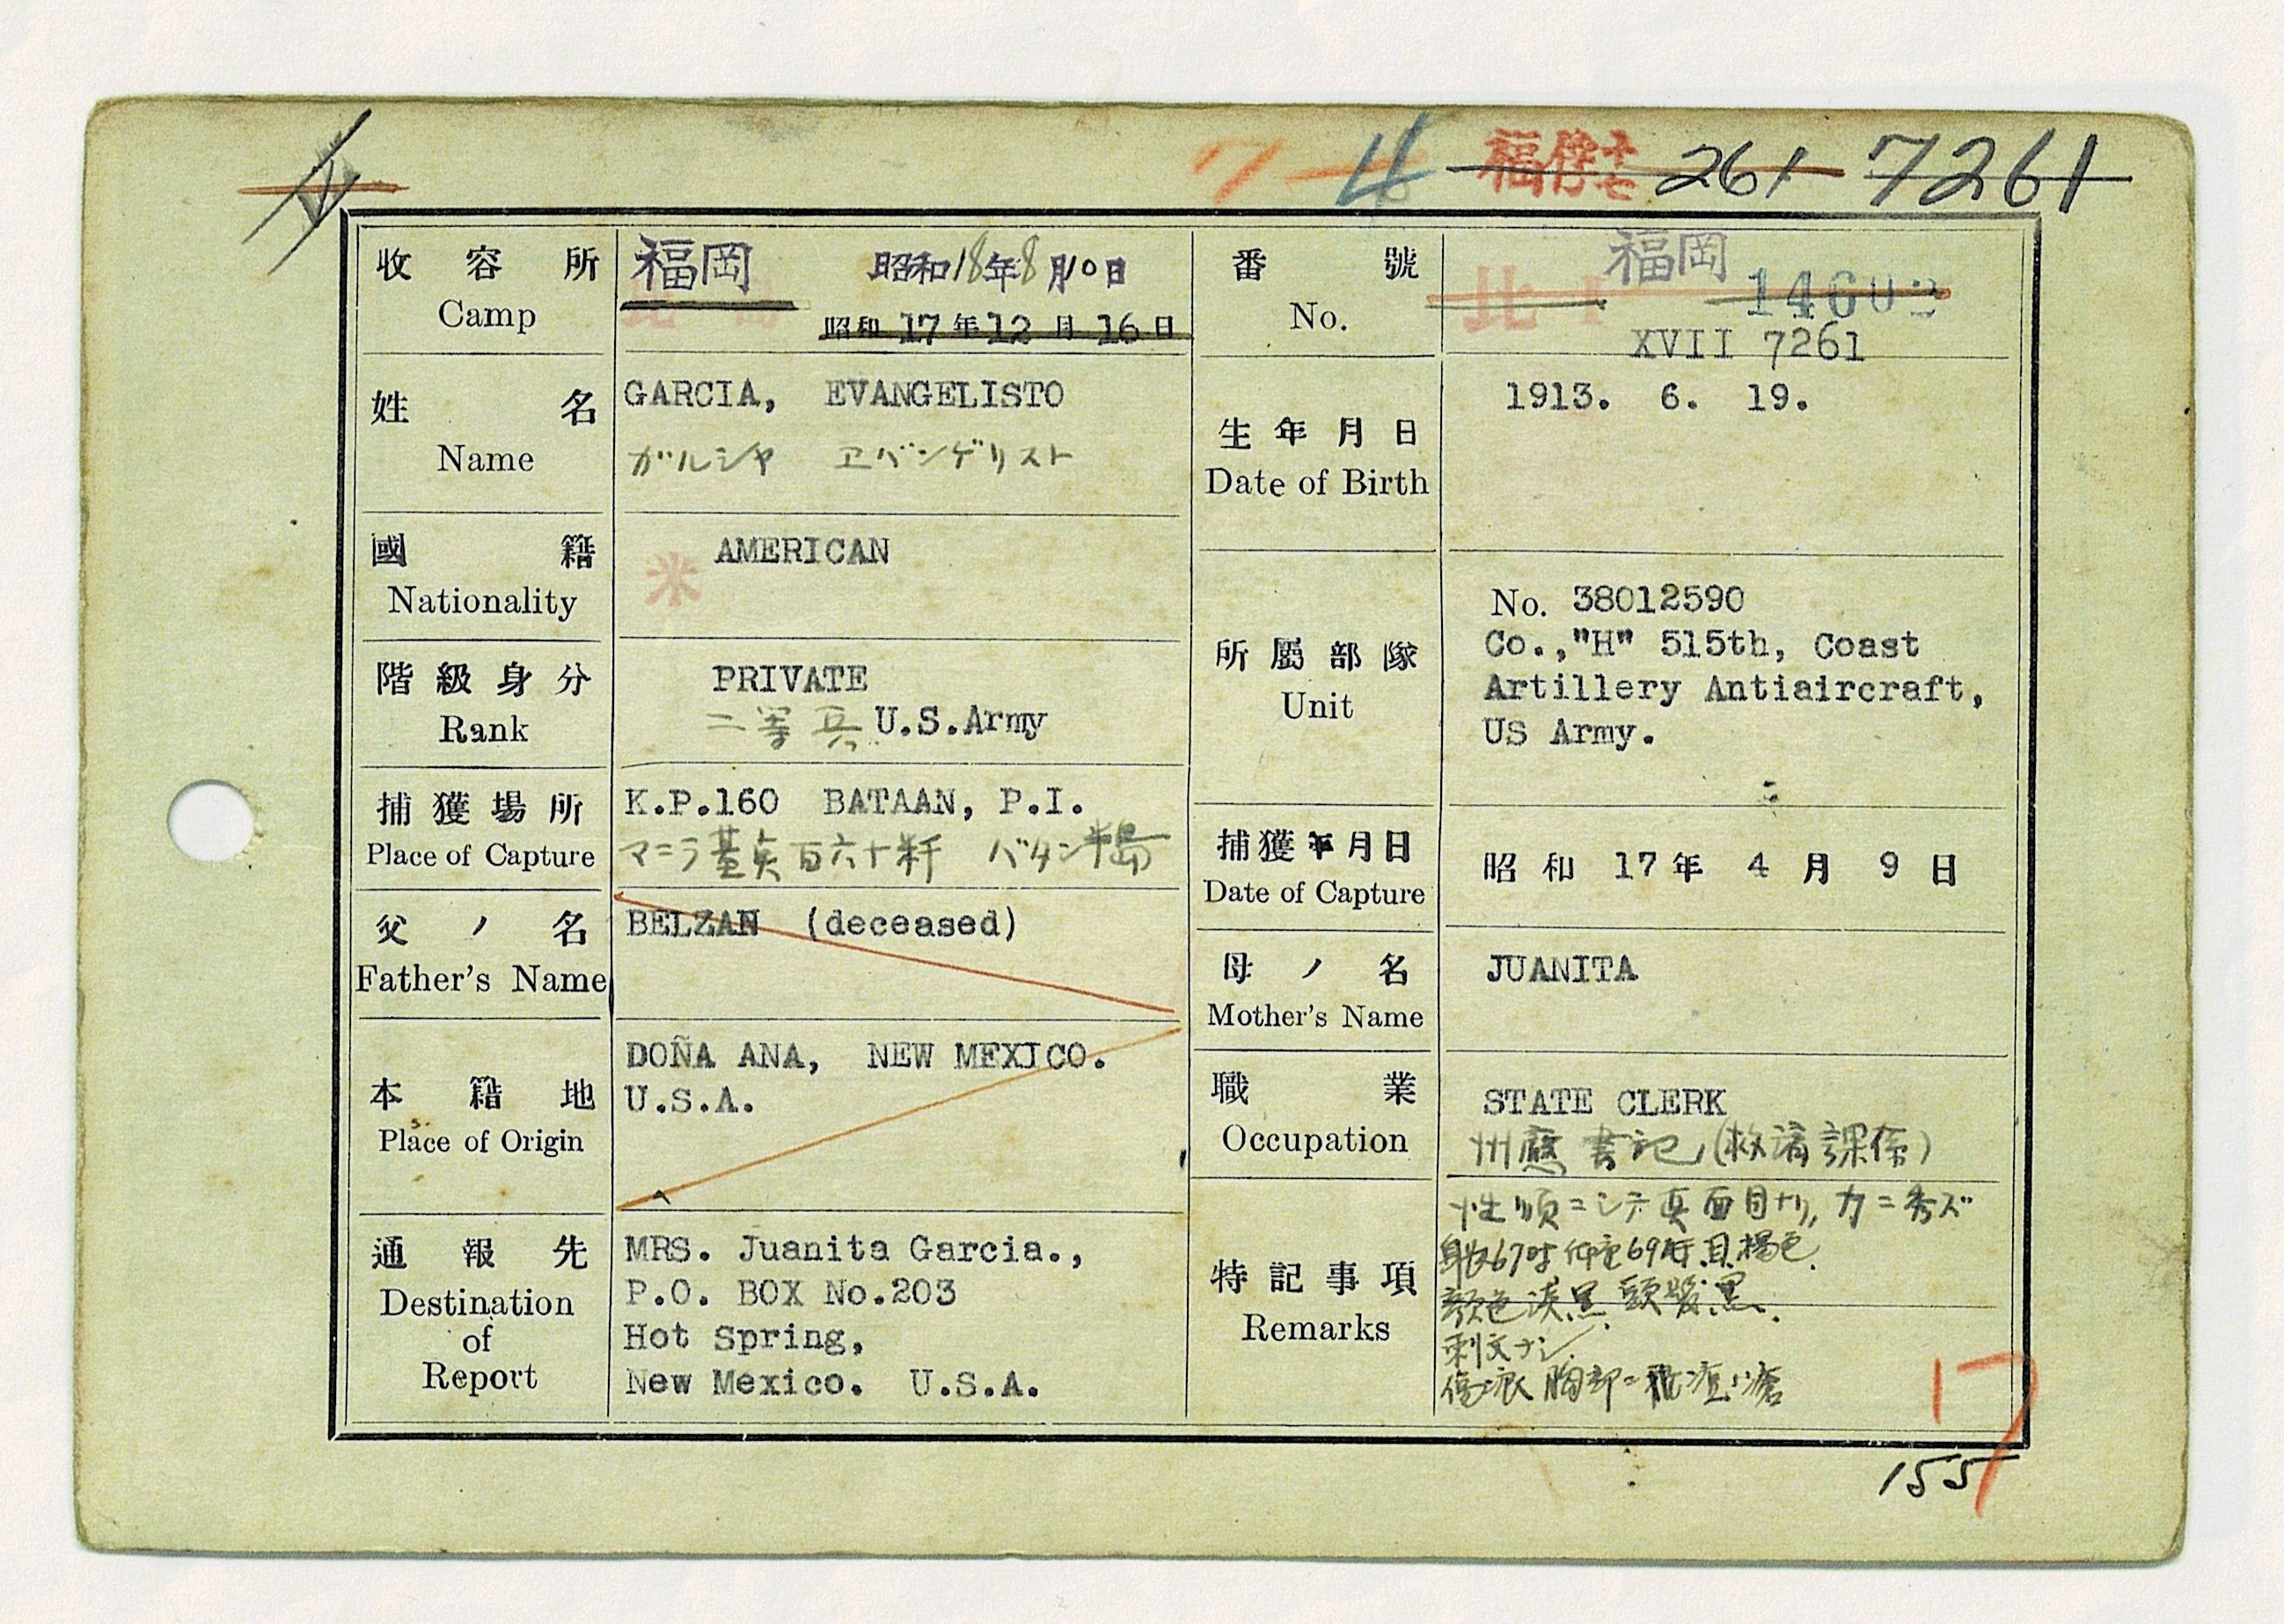 7 4 福俘十七 261 7261
收容所
Camp
福岡 昭和18年8月10日
昭和17年12月16日
番號
No.
福岡
北 14602
XVII 7261
姓名
Name
GARCIA, EVANGELISTO
ガルシヤ エバンゲリスト
生年月日
Date of Birth
1913. 6. 19.
國籍
Nationality
米 AMERICAN
階級身分
Rank
PRIVATE
二等兵 U.S.Army
所屬部隊
Unit
No. 38012590
Co.,"H" 515th, Coast
Artillery Antiaircraft,
US Army.
捕獲場所
Place of Capture
K.P.160 BATAAN, P.I.
マニラ基点百六十粁 バタン半島
捕獲年月日
Date of Capture
昭和 17年 4月 9日
父ノ名
Father's Name
BELZAN (deceased)
母ノ名
Mother's Name
JUANITA
本籍地
Place of Origin
DOÑA ANA, NEW MEXICO.
U.S.A.
職業
Occupation
STATE CLERK
州廳書記(救濟課係)
通報先
Destination
of
Report
MRS. Juanita Garcia.,
P.O. BOX No.203
Hot Spring,
New Mexico. U.S.A.
特記事項
Remarks
性順ニシテ真面目ナリ,力ニ秀ズ
身長67吋 体重69瓩 目褐色.
顔色淡黒 頭髪黒.
刺文ナシ.
傷痕 胸部ニ
17
155